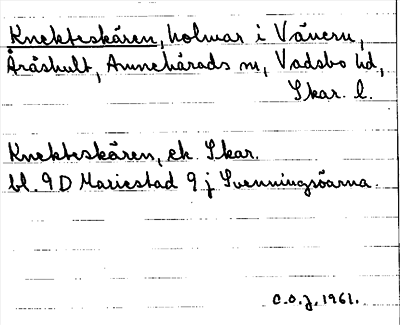 Knekteskären, holmar i Vänern,
Åråshult, Amnehärads sn, Vadsbo hd,
Skar. l.
Knekteskären, ek. Skar.
bl. 9 D Mariestad 9 j Svenningsöarna.
C.O.J. 1961.